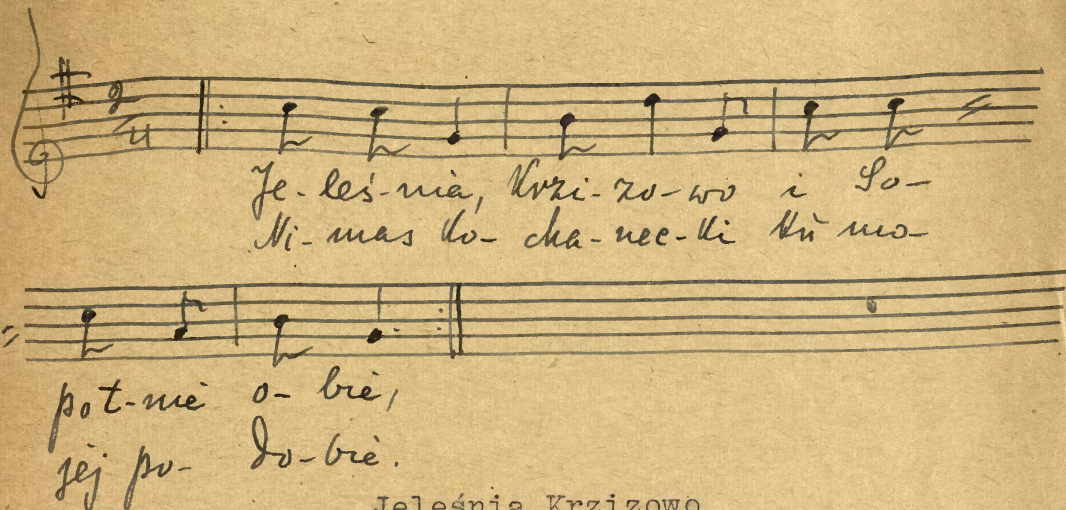 2
4
Je-leś-nia, Krzi-zo-wo i So-
Ni-mas Ko-cha-nec-ki ku mo-
pot-nie o-bie,
jej po-do-bie.
Jeleśnia Krzizowo